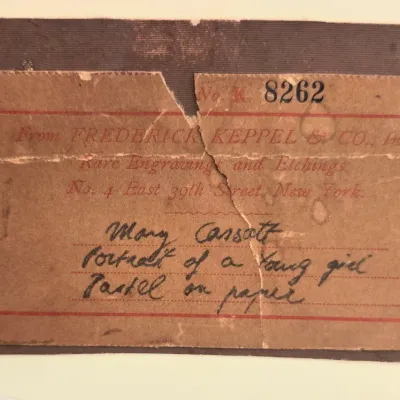 No K 8262
From FREDERICK KEPPEL & CO., In
Rare Engravings and Etchings
No. 4 East 39th Street, New York.
Mary Cassatt
Portrait of a Young girl
Pastel on paper